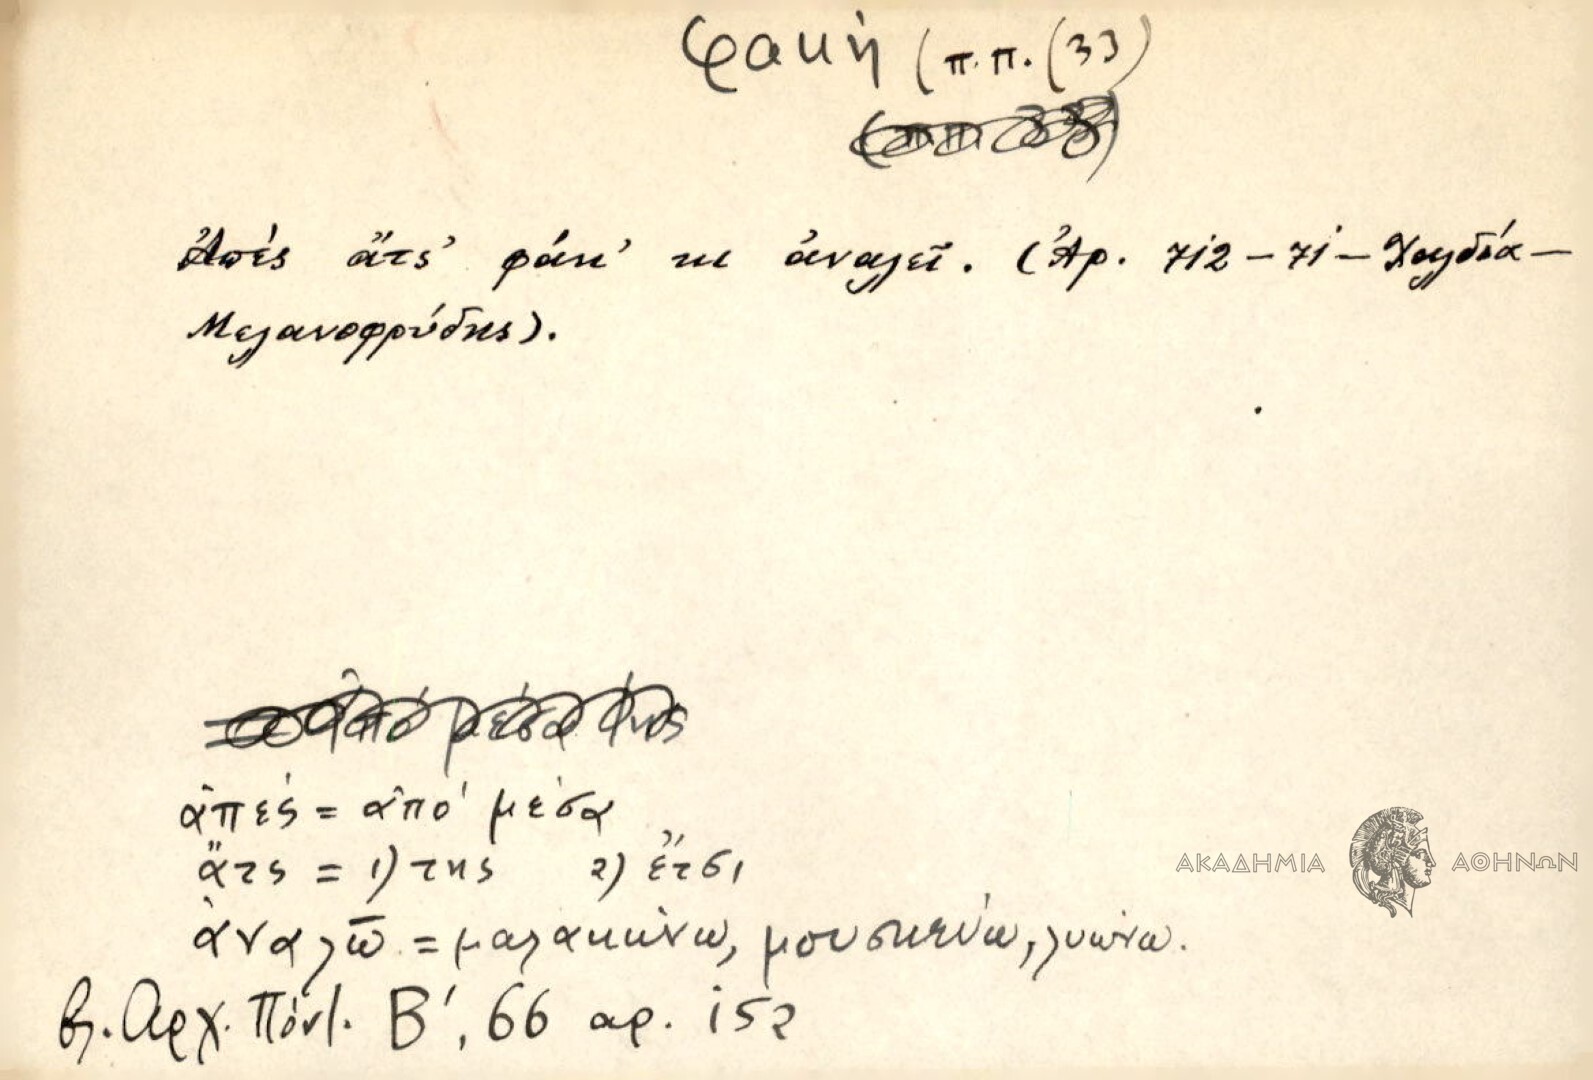 φακή (π.π. (33)
Ἀπὲς ἄτς' φάκ' κι ἀναλεῖ. (Ἀρ. 712 - 71 - Χαλδία -
Μελανοφρύδης).
ἀπές = ἀπό μέσα
ἄτς = 1) της 2) ἔτσι
ἀναλῶ = μαλακώνω, μουσκεύω, λυώνω.
βλ. Ἀρχ. Πόντ. Β', 66 αρ. 152
ΑΚΑΔΗΜΙΑ ΑΘΗΝΩΝ